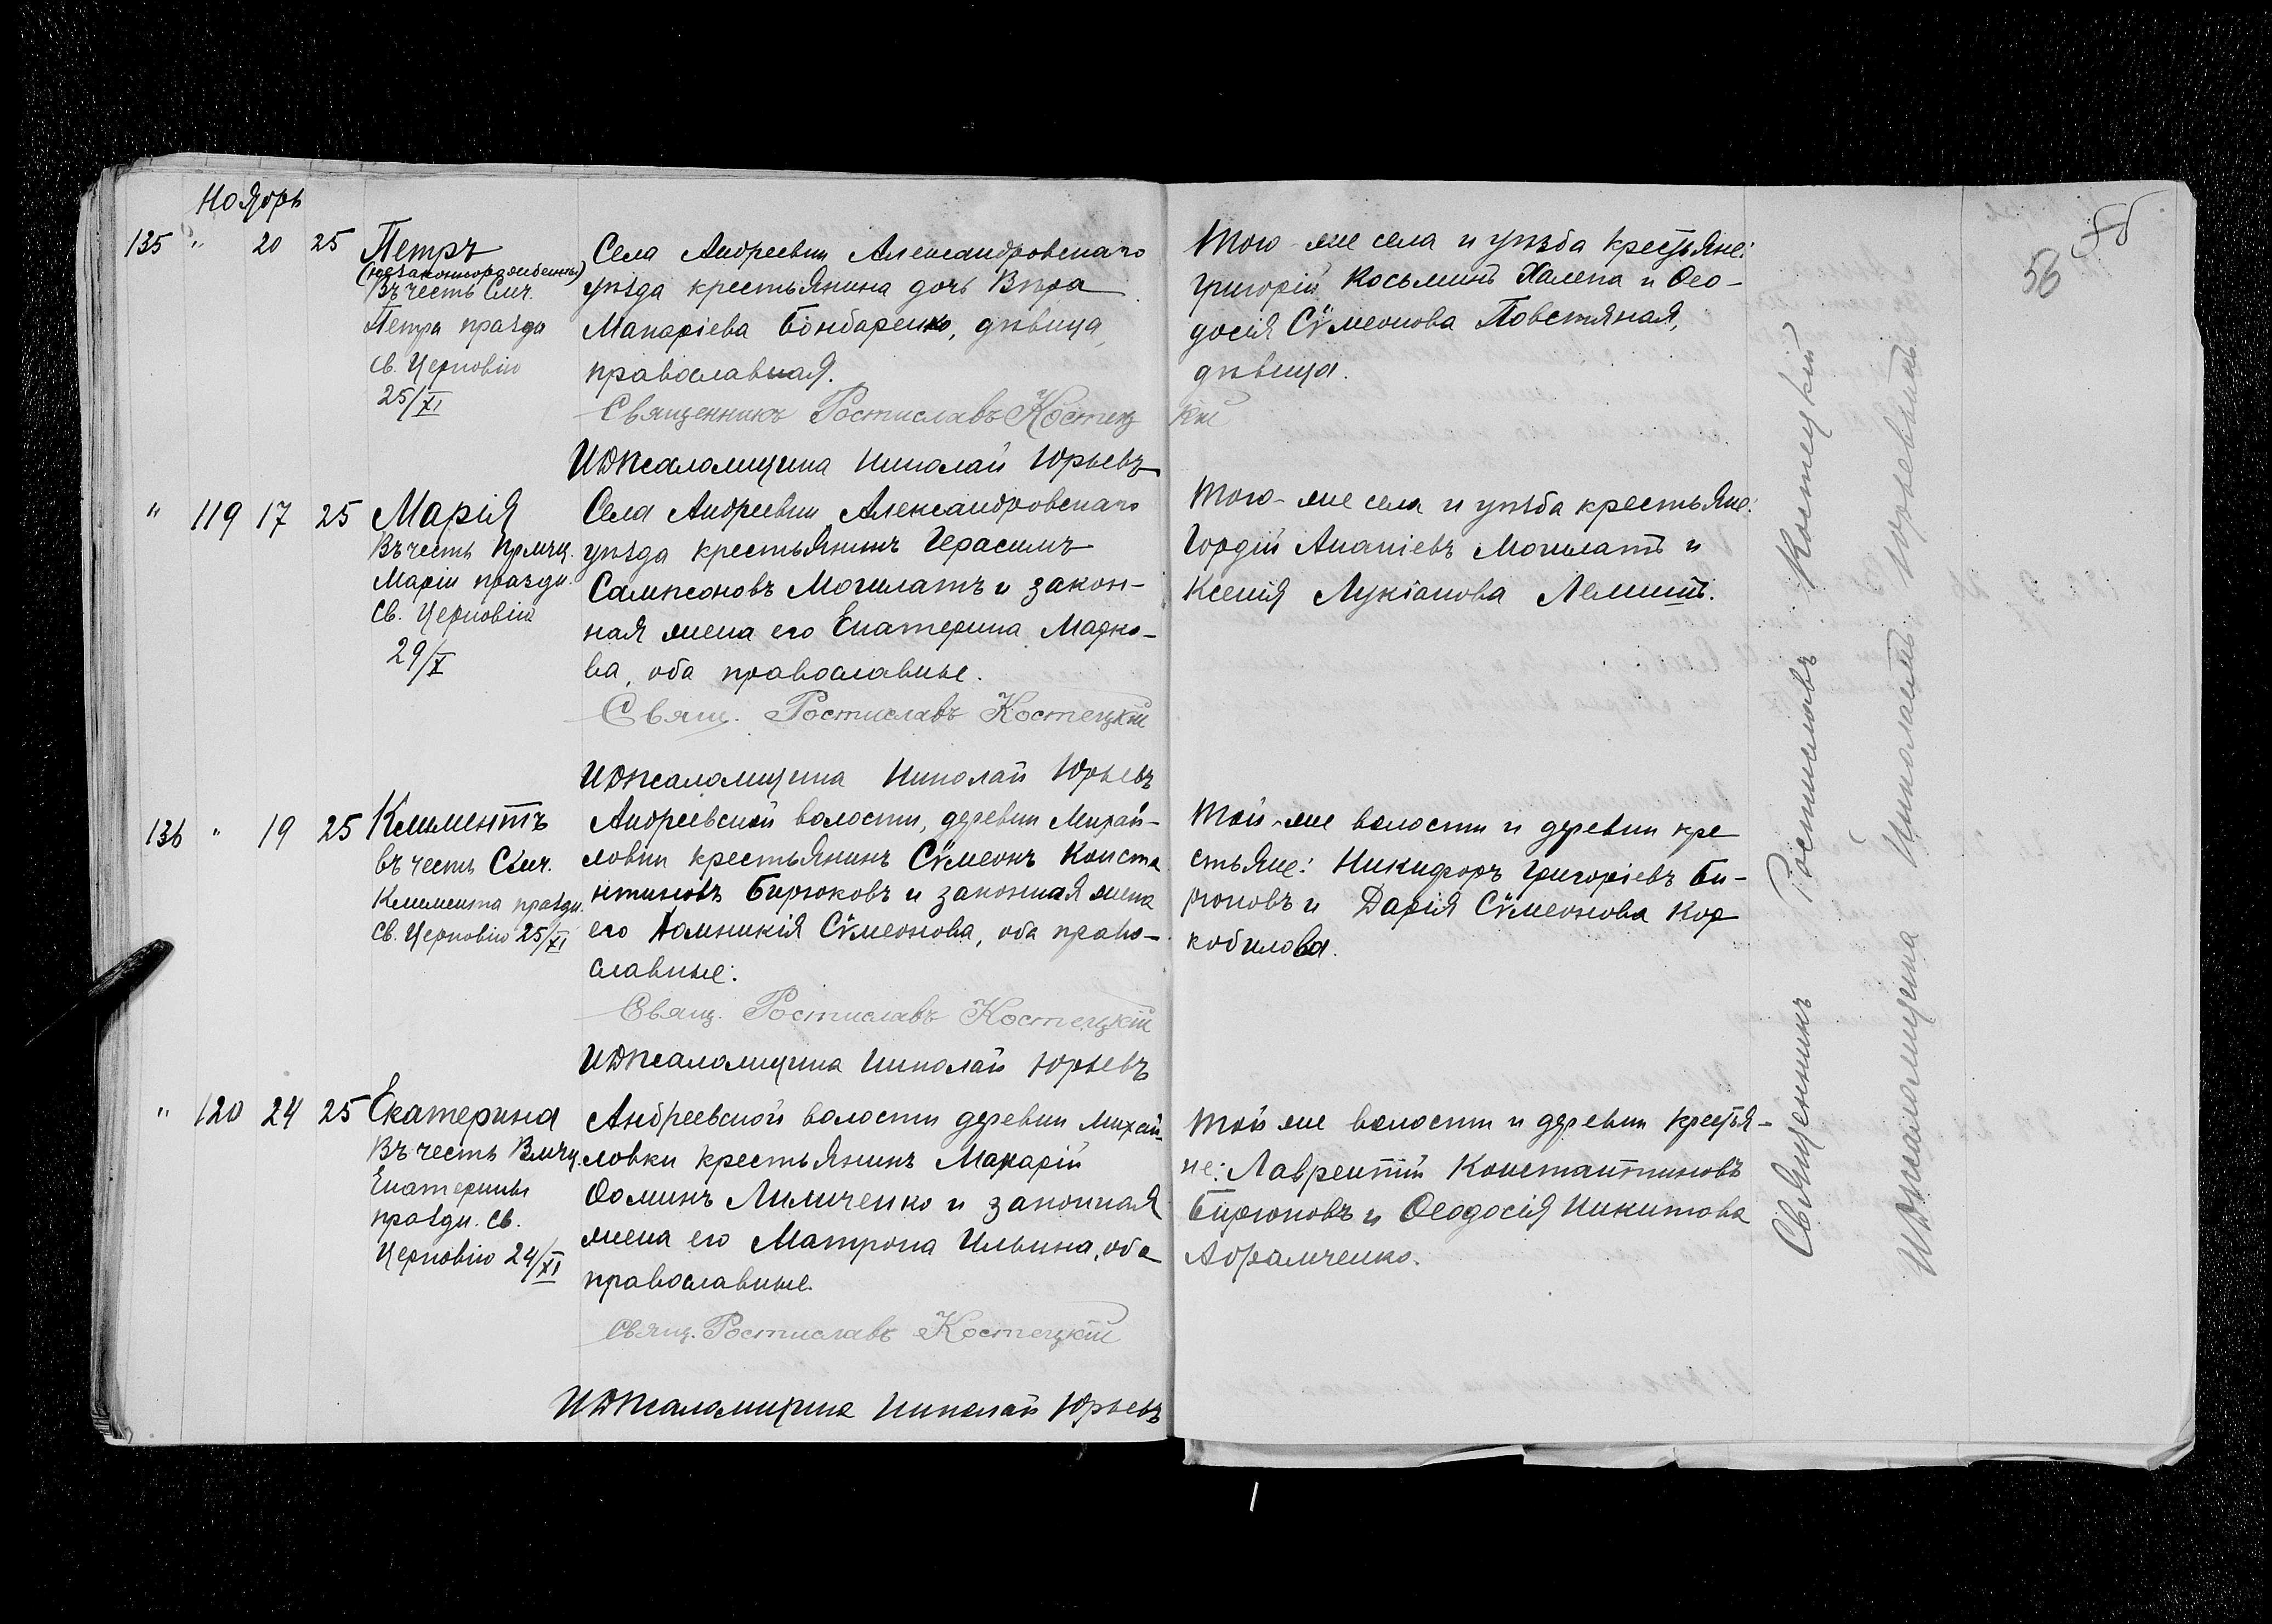 Ноябрь
135 " 20 25 Петръ
(незаконнорожденный)
Въ честь Смч.
Петра празд.
св. Церковію
25/XI
Села Андреевки Александровскаго
уѣзда крестьянина дочь Вѣра
Макаріева Бондаренко, дѣвица,
православная.
Священникъ Ростиславъ Костецкій
И.д. псаломщика Николай Юрьевъ
Того-же села и уѣзда крестьяне:
Григорій Косьминъ Халепа и Ѳео-
досія Сѵмеонова Повстяная,
дѣвица.
" 119 17 25 Марія
Въ честь Прмчц.
Маріи праздн.
св. Церковію
29/X
Села Андреевки Александровскаго
уѣзда крестьянинъ Герасимъ
Сампсоновъ Могилатъ и закон-
ная жена его Екатерина Марко-
ва, оба православные.
Свящ. Ростиславъ Костецкій
И.д. псаломщика Николай Юрьевъ
Того-же села и уѣзда крестьяне:
Гордій Ананіевъ Могилатъ и
Ксенія Лукіанова
136 " 19 25 Климентъ
въ честь Смч.
Климента праздн.
св. Церковію 25/XI
Андреевской волости, деревни Михай-
ловки крестьянинъ Сѵмеонъ Конста
нтиновъ Бирюковъ и законная жена
его Домникія Сѵмеонова, оба право-
славные.
Свящ. Ростиславъ Костецкій
И.д. псаломщика Николай Юрьевъ
Той-же волости и деревни кре
стьяне: Никифоръ Григоріевъ Би-
рюковъ и Дарія Сѵмеонова Кор
кобилова.
" 120 24 25 Екатерина
Въ честь Вмчц.
Екатерины
праздн. св.
Церковію 24/XI
Андреевской волости деревни Михай-
ловки крестьянинъ Макарій
Ѳоминъ Лимиченко и законная
жена его Матрона Ильина, оба
православные.
Свящ. Ростиславъ Костецкій
И.д. псаломщика Николай Юрьевъ
Той же волости и деревни крестья-
не: Лаврентій Константиновъ
Бирюковъ и Ѳеодосія Никитова
Абрамченко.
Священникъ Ростиславъ Костецкій
И.д. псаломщика Николай Юрьевъ
56